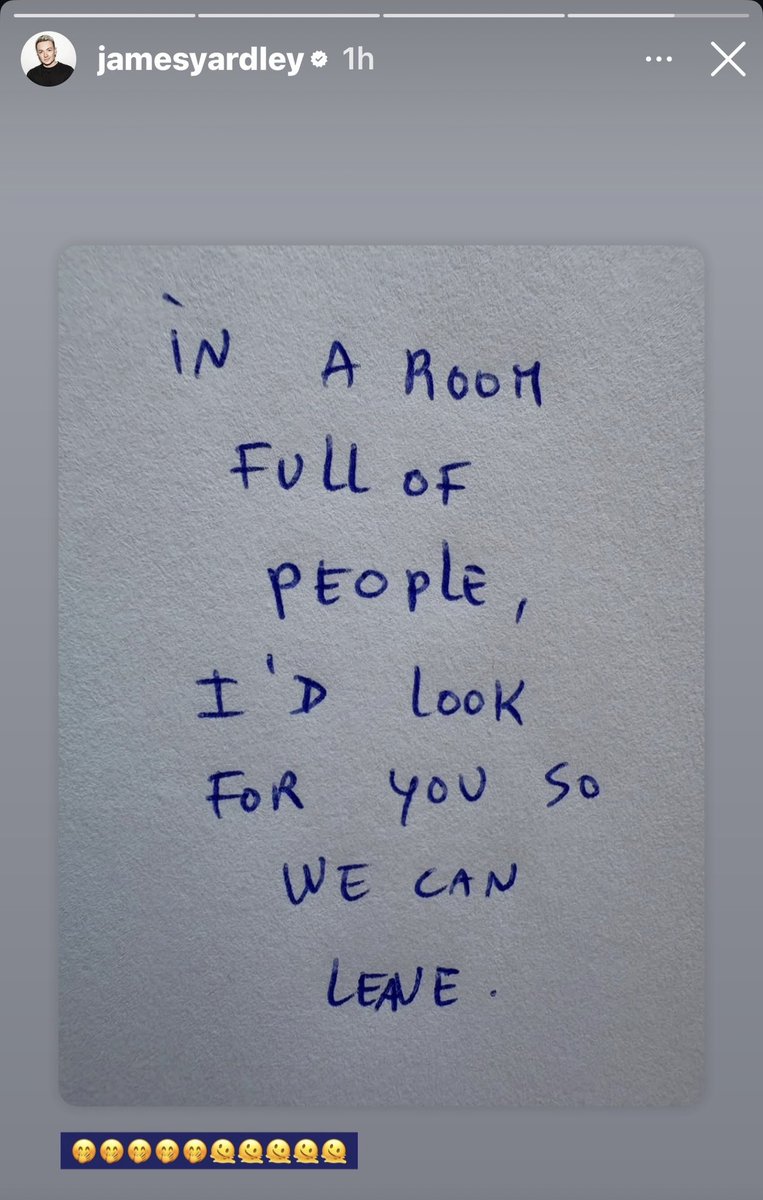 jamesyardley 1h
iN A ROOM
FUll OF
PEOPlE,
I'D look
FOR YOU SO
WE CAN
LEAVE.
🤭🤭🤭🤭🤭🫠🫠🫠🫠🫠